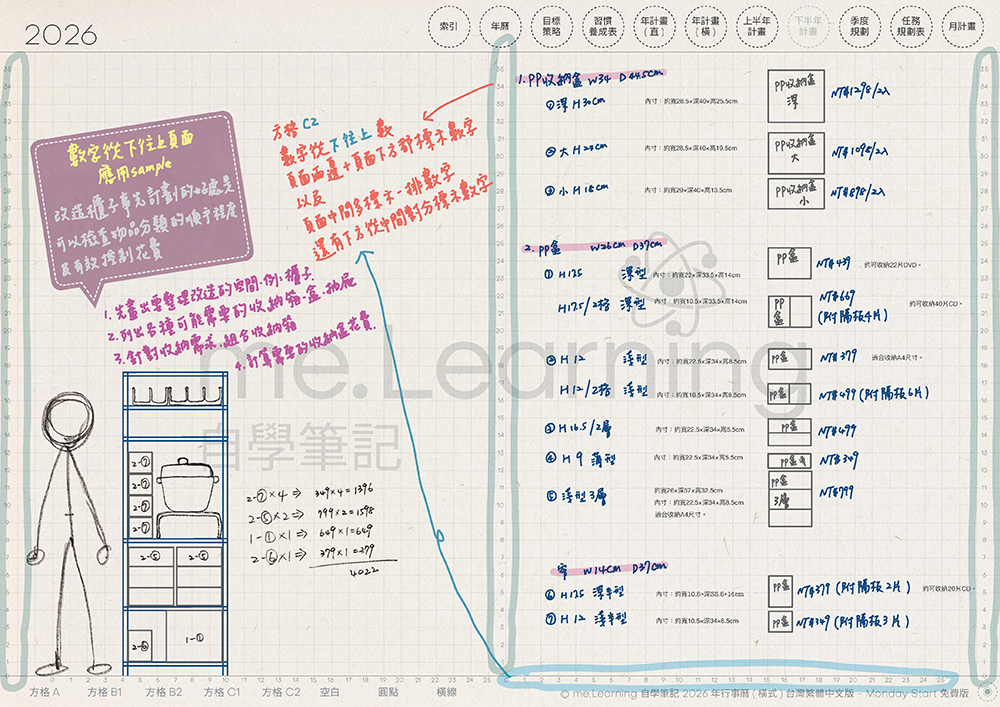 2026
索引
年曆
目標
策略
習慣
養成表
年計畫
(直)
年計畫
(橫)
上半年
計畫
下半年
計畫
季度
規劃
任務
規劃表
月計畫
數字從下往上頁面
應用sample
改造櫃子事先計劃的好處是
可以檢查物品分類的順手程度
及有效控制花費
方格 C2
數字從下往上數
頁面兩邊+頁面下方都標示數字
以及
頁面中間多標示一排數字
還有下方從中間對分標示數字
1. 先畫出要整理改造的空間.例:櫃子.
2. 列出各種可能需要的收納箱.盒.抽屜
3. 針對收納需求.組合收納箱
4. 計算需要的收納盒花費.
2-⑦
2-⑦
2-⑦
2-⑦
2-⑤
2-⑤
2-⑥
1-①
2-⑦×4 ⇒ 349×4=1396
2-⑤×2 ⇒ 799×2=1598
1-①×1 ⇒ 649×1=649
2-⑥×1 ⇒ 379×1=379
4022
1. PP收納盒 W34 D44.5cm
①深 H30cm 內寸:約寬28.5×深40×高25.5cm PP收納盒 深 NT$1298/2入
②大 H24cm 內寸:約寬28.5×深40×高19.5cm PP收納盒 大 NT$1098/2入
③小 H18cm 內寸:約寬29×深40×高13.5cm PP收納盒 小 NT$898/2入
2. PP盒 W26cm D37cm
① H17.5 深型 內寸:約寬22×深33.5×高14cm PP盒 NT$439 約可收納22片DVD。
H17.5/2格 深型 內寸:約寬10.5×深33.5×高14cm PP盒 NT$669 約可收納40片CD。
(附隔板4片)
② H12 淺型 內寸:約寬22.5×深34×高8.5cm PP盒 NT$379 適合收納A4尺寸。
H12/2格 淺型 內寸:約寬10.5×深34×高8.5cm PP盒 NT$499 (附隔板6片)
③ H16.5/2層 內寸:約寬22.5×深34×高5.5cm PP盒 NT$499
④ H9 薄型 內寸:約寬22.5×深34×高5.5cm PP盒 NT$349
⑤ 淺型3層 約寬26×深37×高32.5cm PP盒 3層 NT$799
內寸:約寬22.5×深34×高8.5cm
適合收納A4尺寸。
窄 W14cm D37cm
⑥ H17.5 深窄型 內寸:約寬10.5×深33.5×高14cm PP盒 NT$379 (附隔板2片) 約可收納20片CD。
⑦ H12 淺窄型 內寸:約寬10.5×深34×高8.5cm PP盒 NT$349 (附隔板3片)
me.Learning
自學筆記
方格 A
方格 B1
方格 B2
方格 C1
方格 C2
空白
圓點
橫線
© me.Learning 自學筆記 2026 年行事曆 ( 橫式 ) 台灣繁體中文版 - Monday Start 免費版